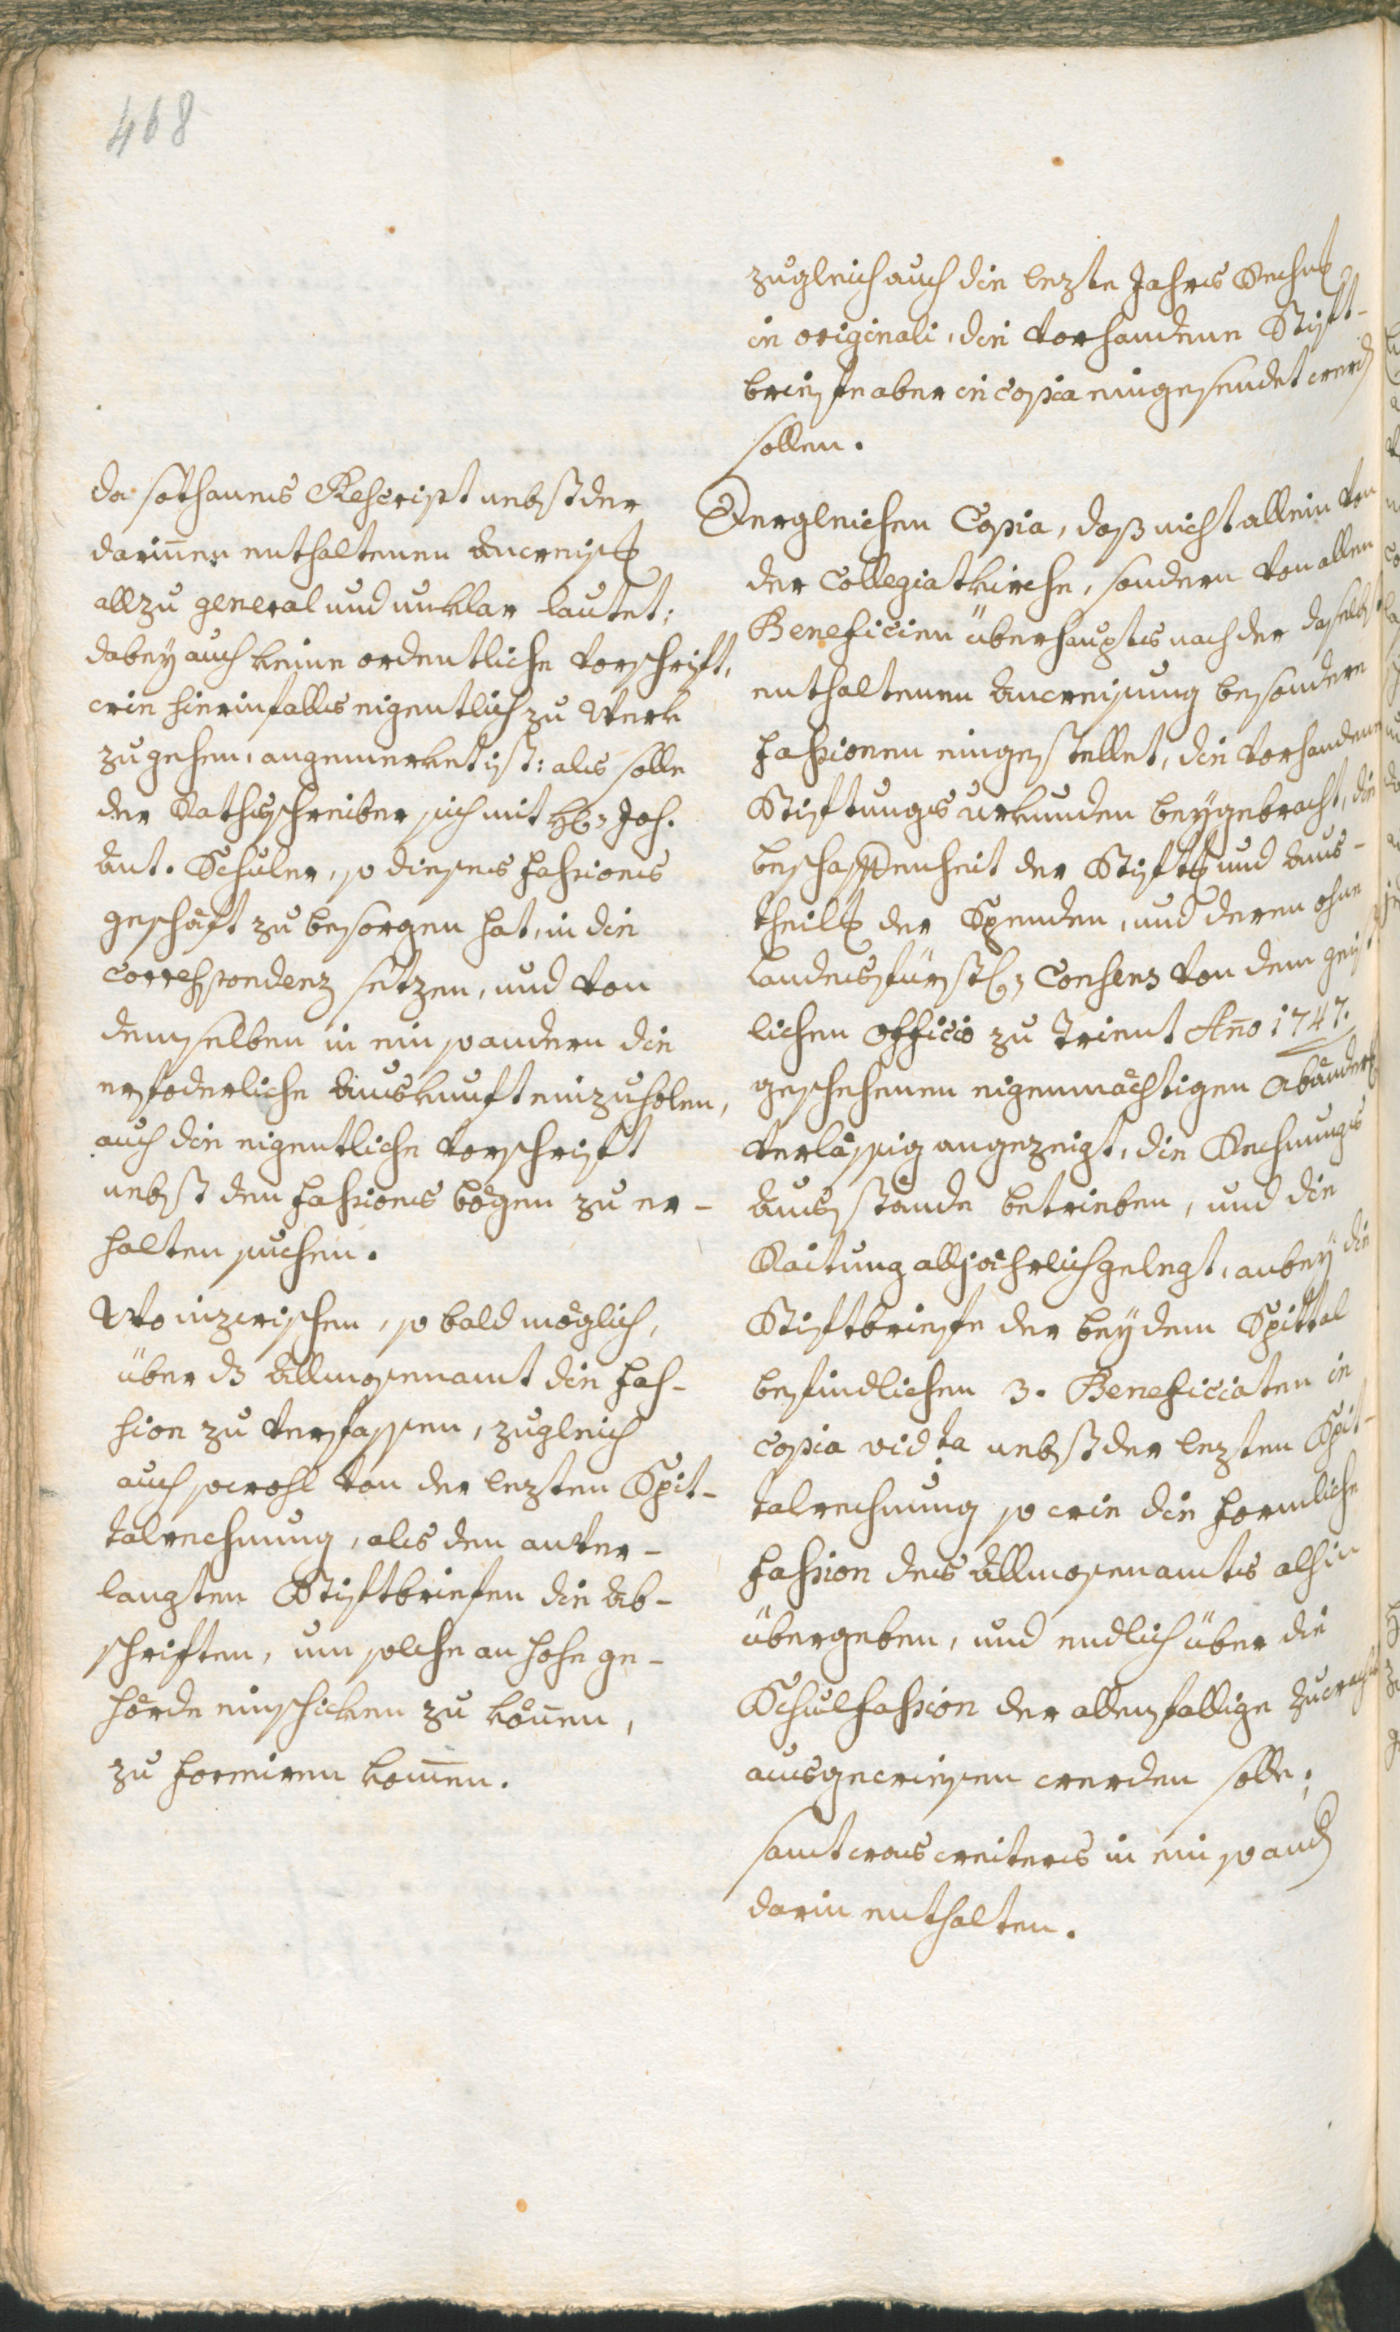 468
da sothanes Rescript nebst der
dariñen enthaltenen Anweis
allzu general und unklar lautet;
dabey auch keine ordentliche Vorschrift,
wie hierinfalls eigentlich zu Werk
zugehen, angemerket ist: als solle
der Rathsschreiber sich mit H: Joh.
Ant. Schuler, so dieses Fassions
geschäft zu besorgen hat, in die
Correspondenz setzen, und von
demselben in ein so andern die
erfoderliche Auskunft einzuholen,
auch die eigentliche Vorschrift
nebst den Fassions bögen zu er-
halten suchen.
Wo inzwischen, so bald möglich,
über ds Allmosenamt die Fas-
sion zu verfassen, zugleich
auch sowohl von der lezten Spit-
talrechnung, als den anver-
langten Stiftbriefen die Ab-
schriften, um solche an hohe ge-
hörde einschicken zu köñen,
zu formiren kom̄en.
zugleich auch die lezte Jahrs Rechng
in originali, die vorhandene Stift-
briefe aber in Copia eingesendet werd
sollen.
Dergleichen Copia, daß nicht allein von
der Collegiatkirche, sondern von allen
Beneficien überhaupts nach der daselbst
enthaltenen Anweisung besondere
Fassionen eingestellet, die vorhandene
Stiftungs urkunden beygebracht, die
beschaffenheit der Stiftg und Aus-
theilg der Spenden, und deren ohne
Landesfürstl: Consens von dem geist
lichen Officio zu Trient Año 1747.
geschehenen eigenmächtigen Abänderg
verlässig angezeigt, die Rechnungs
Ausstände betrieben, und die
Raitung alljährlich gelegt, anbey die
Stiftbriefe der bey dem Spittal
befindlichen 3. Beneficiaten in
copia vidta nebst der lezten Spit-
talrechnung so wie die förmliche
Fassion des Allmosenamts alhin
übergeben, und endlich über die
Schulfassion der allenfallige Zuwachs
ausgewiesen werden solle;
samt was weiters in ein so and
darin enthalten.